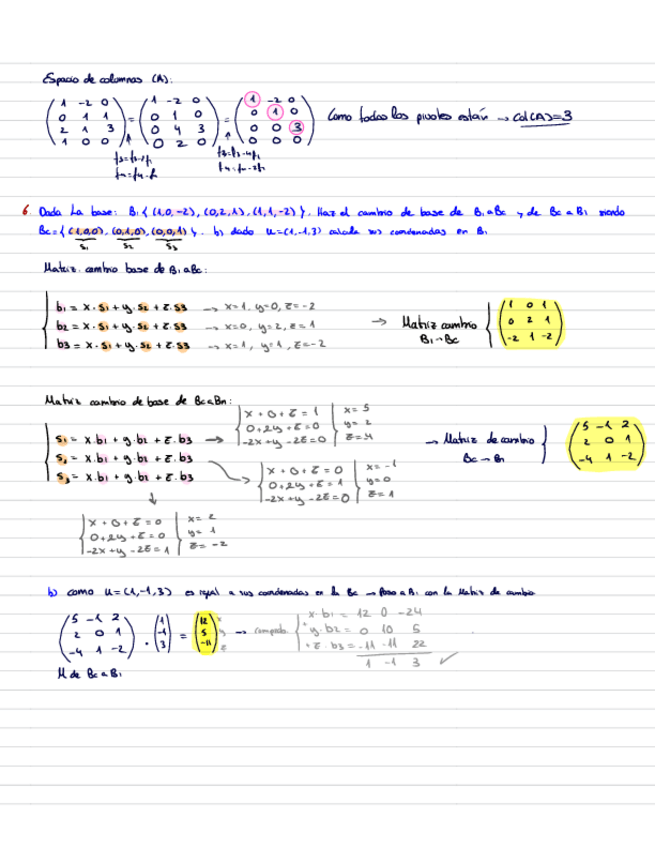 Espacio de columnas (A):
( 1 -2 0 ) = ( 1 -2 0 ) = ( 1 -2 0 )
( 0 1 1 ) ( 0 1 0 ) ( 0 1 0 ) Como todos los pivotes están → Col(A)=3
( 2 1 3 ) ( 0 4 3 ) ( 0 0 3 )
( 1 0 0 ) ( 0 2 0 ) ( 0 0 0 )
6. Dada la base: B₁{(1,0,-2), (0,2,1), (1,1,-2)}. Haz el cambio de base de B₁ a Bc y de Bc a B₁ siendo
Bc={(1,0,0), (0,1,0), (0,0,1)}. b) dado u=(1,-1,3) calcula sus coordenadas en B₁
S₁ S₂ S₃
Matriz cambio base de B₁ a Bc:
b₁ = x·s₁ + y·s₂ + z·s₃ → x=1, y=0, z=-2
b₂ = x·s₁ + y·s₂ + z·s₃ → x=0, y=2, z=1 → Matriz cambio B₁→Bc
b₃ = x·s₁ + y·s₂ + z·s₃ → x=1, y=1, z=-2
( 1 0 1 )
( 0 2 1 )
( -2 1 -2 )
Matriz cambio de base de Bc a B₁:
s₁ = x·b₁ + y·b₂ + z·b₃ →
s₂ = x·b₁ + y·b₂ + z·b₃
s₃ = x·b₁ + y·b₂ + z·b₃
x + 0 + z = 1 | x = 5
0 + 2y + z = 0 | y = 2
-2x + y - 2z = 0 | z = -4
x + 0 + z = 0 | x = -1
0 + 2y + z = 1 | y = 0
-2x + y - 2z = 0 | z = 1
x + 0 + z = 0 | x = 2
0 + 2y + z = 0 | y = 1
-2x + y - 2z = 1 | z = -2
→ Matriz de cambio
Bc → B₁
( 5 -1 2 )
( 2 0 1 )
( -4 1 -2 )
b) como u=(1,-1,3) es igual a sus coordenadas en la Bc → Paso a B₁ con la Matriz de cambio
( 5 -1 2 ) ( 1 ) ( 12 ) x
( 2 0 1 ) · ( -1 ) = ( 5 ) y → comprobo
( -4 1 -2 ) ( 3 ) ( -11 ) z
M de Bc a B₁
x·b₁ = 12 0 -24
+ y·b₂ = 0 10 5
+ z·b₃ = -11 -11 22
1 -1 3 ✓